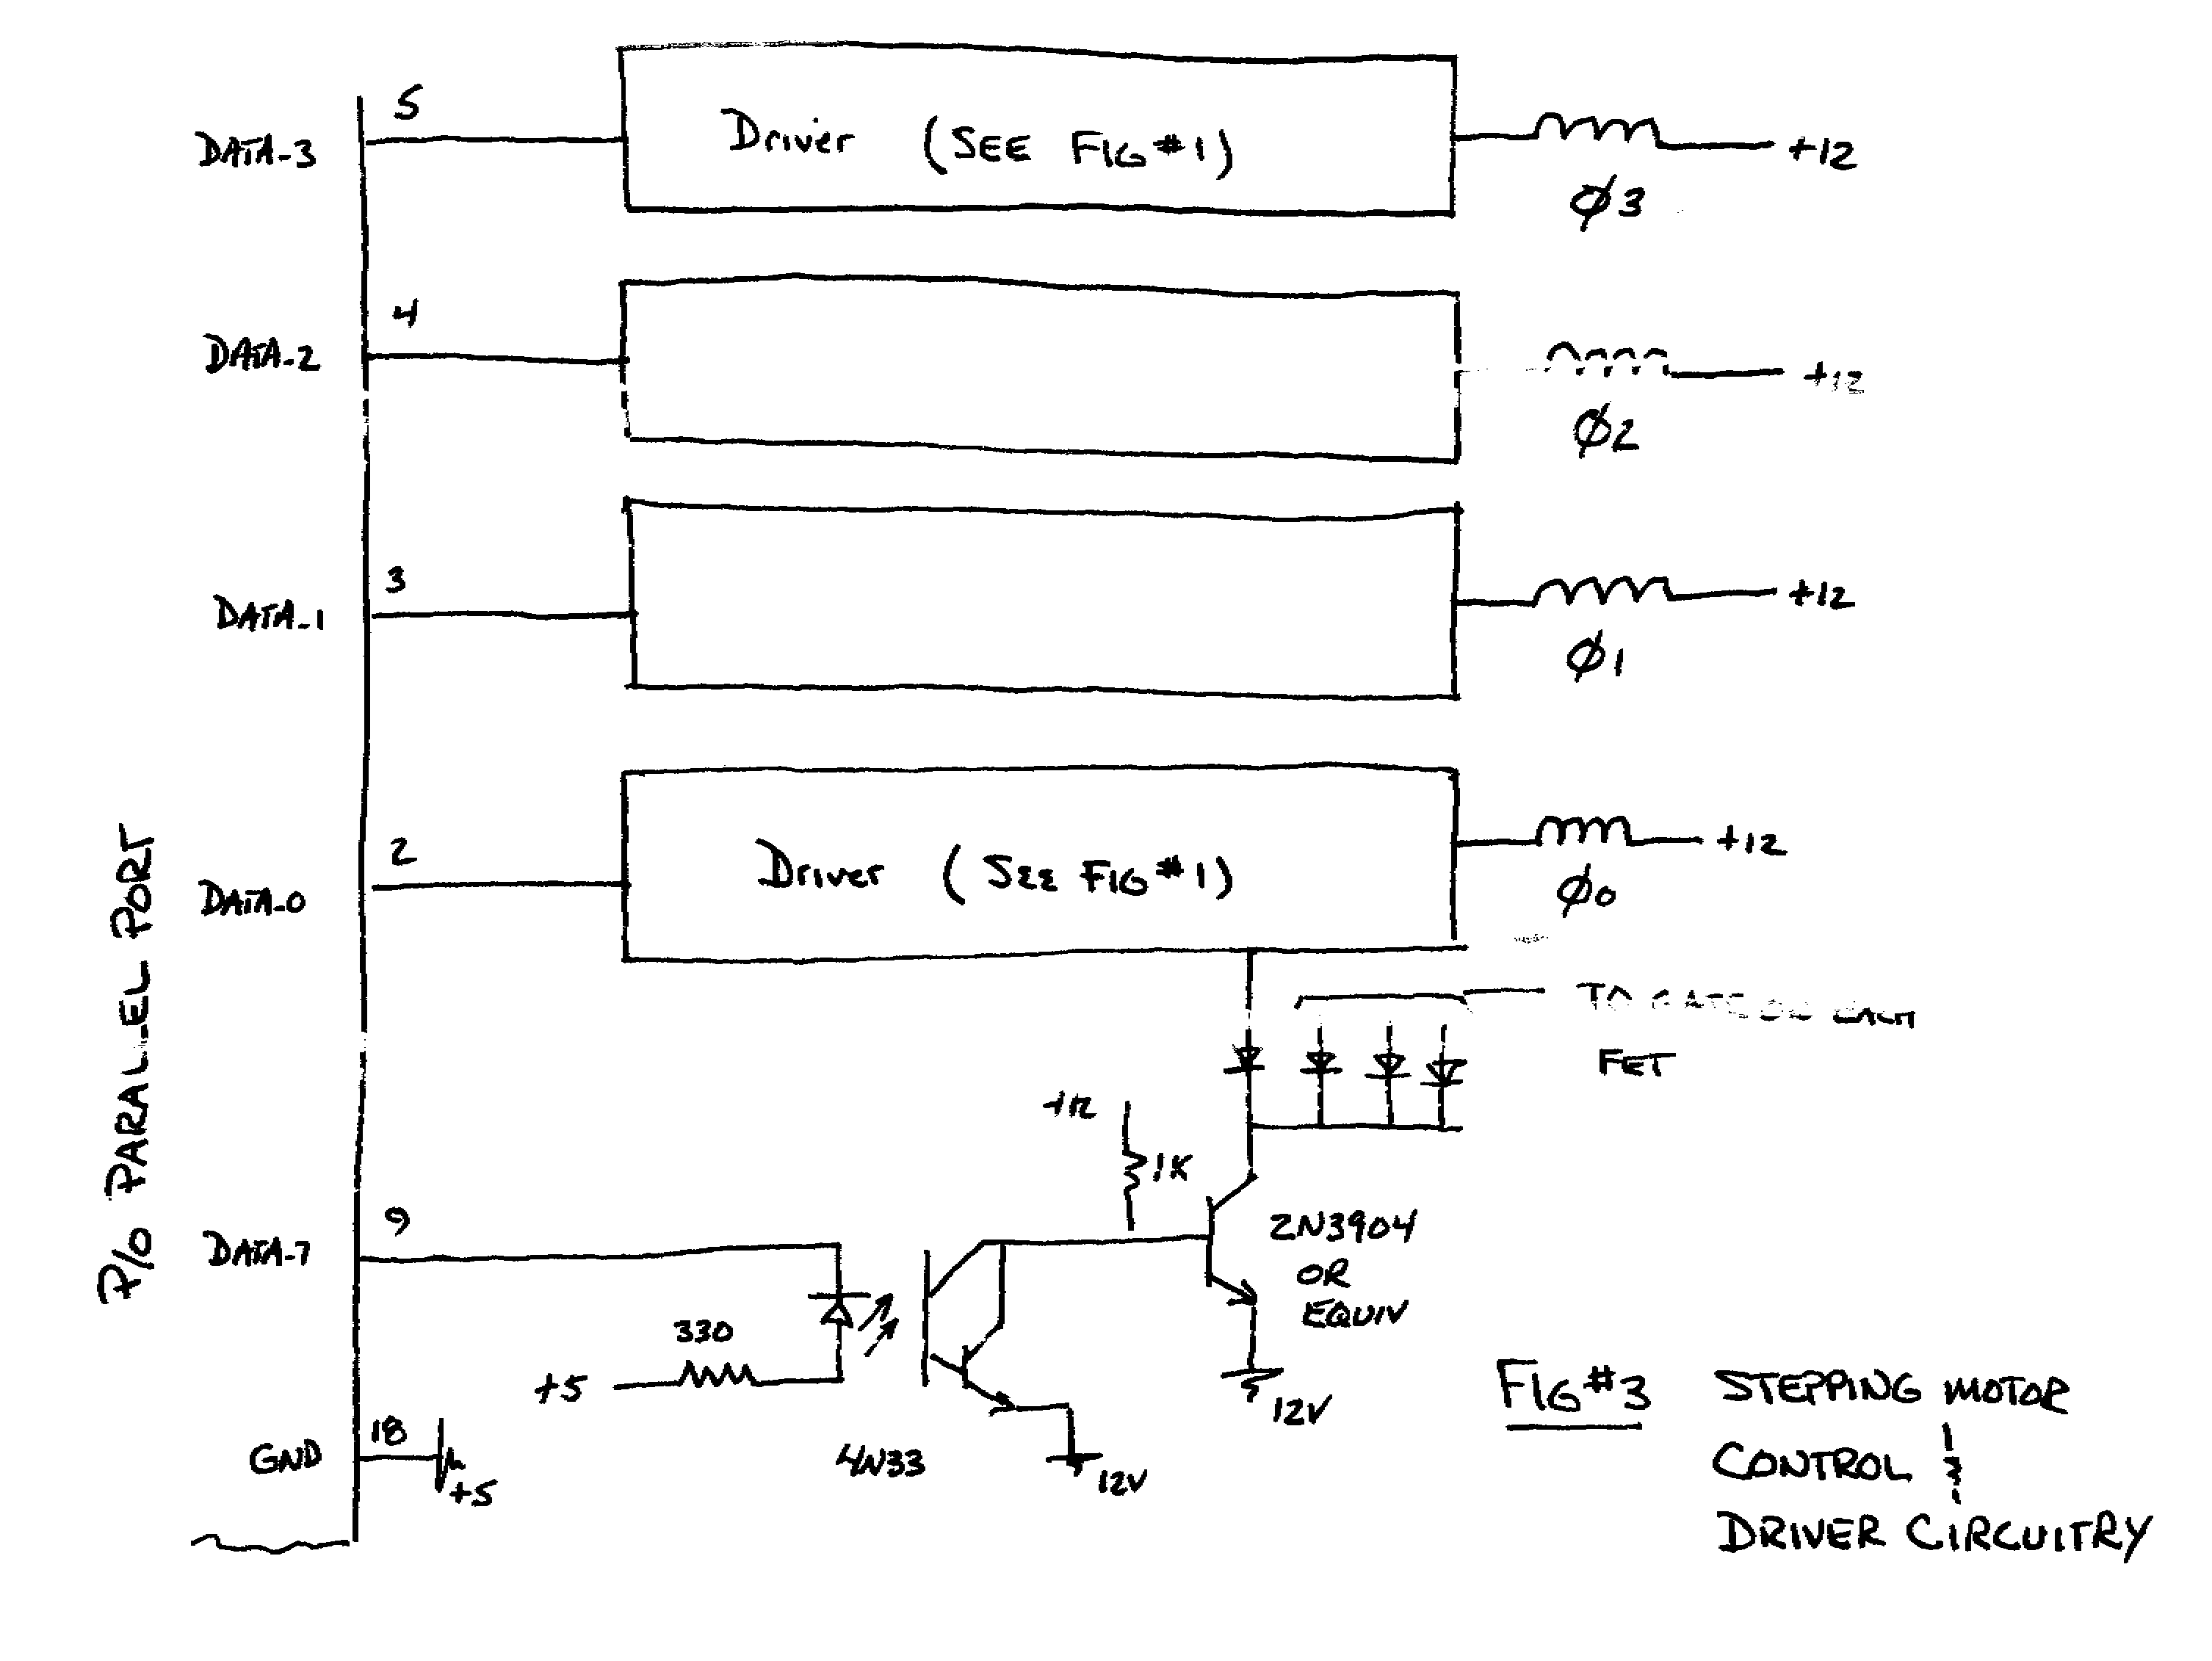 5
DATA-3
Driver (SEE FIG #1)
+12
ø3
4
DATA-2
+12
ø2
3
DATA-1
+12
ø1
2
DATA-0
Driver (SEE FIG #1)
+12
ø0
P/O PARALLEL PORT
TO GATE OF EACH
FET
+12
1K
9
DATA-7
2N3904
OR
EQUIV
330
+5
12V
4N33
12V
18
GND
+5
FIG #3 STEPPING MOTOR
CONTROL &
DRIVER CIRCUITRY